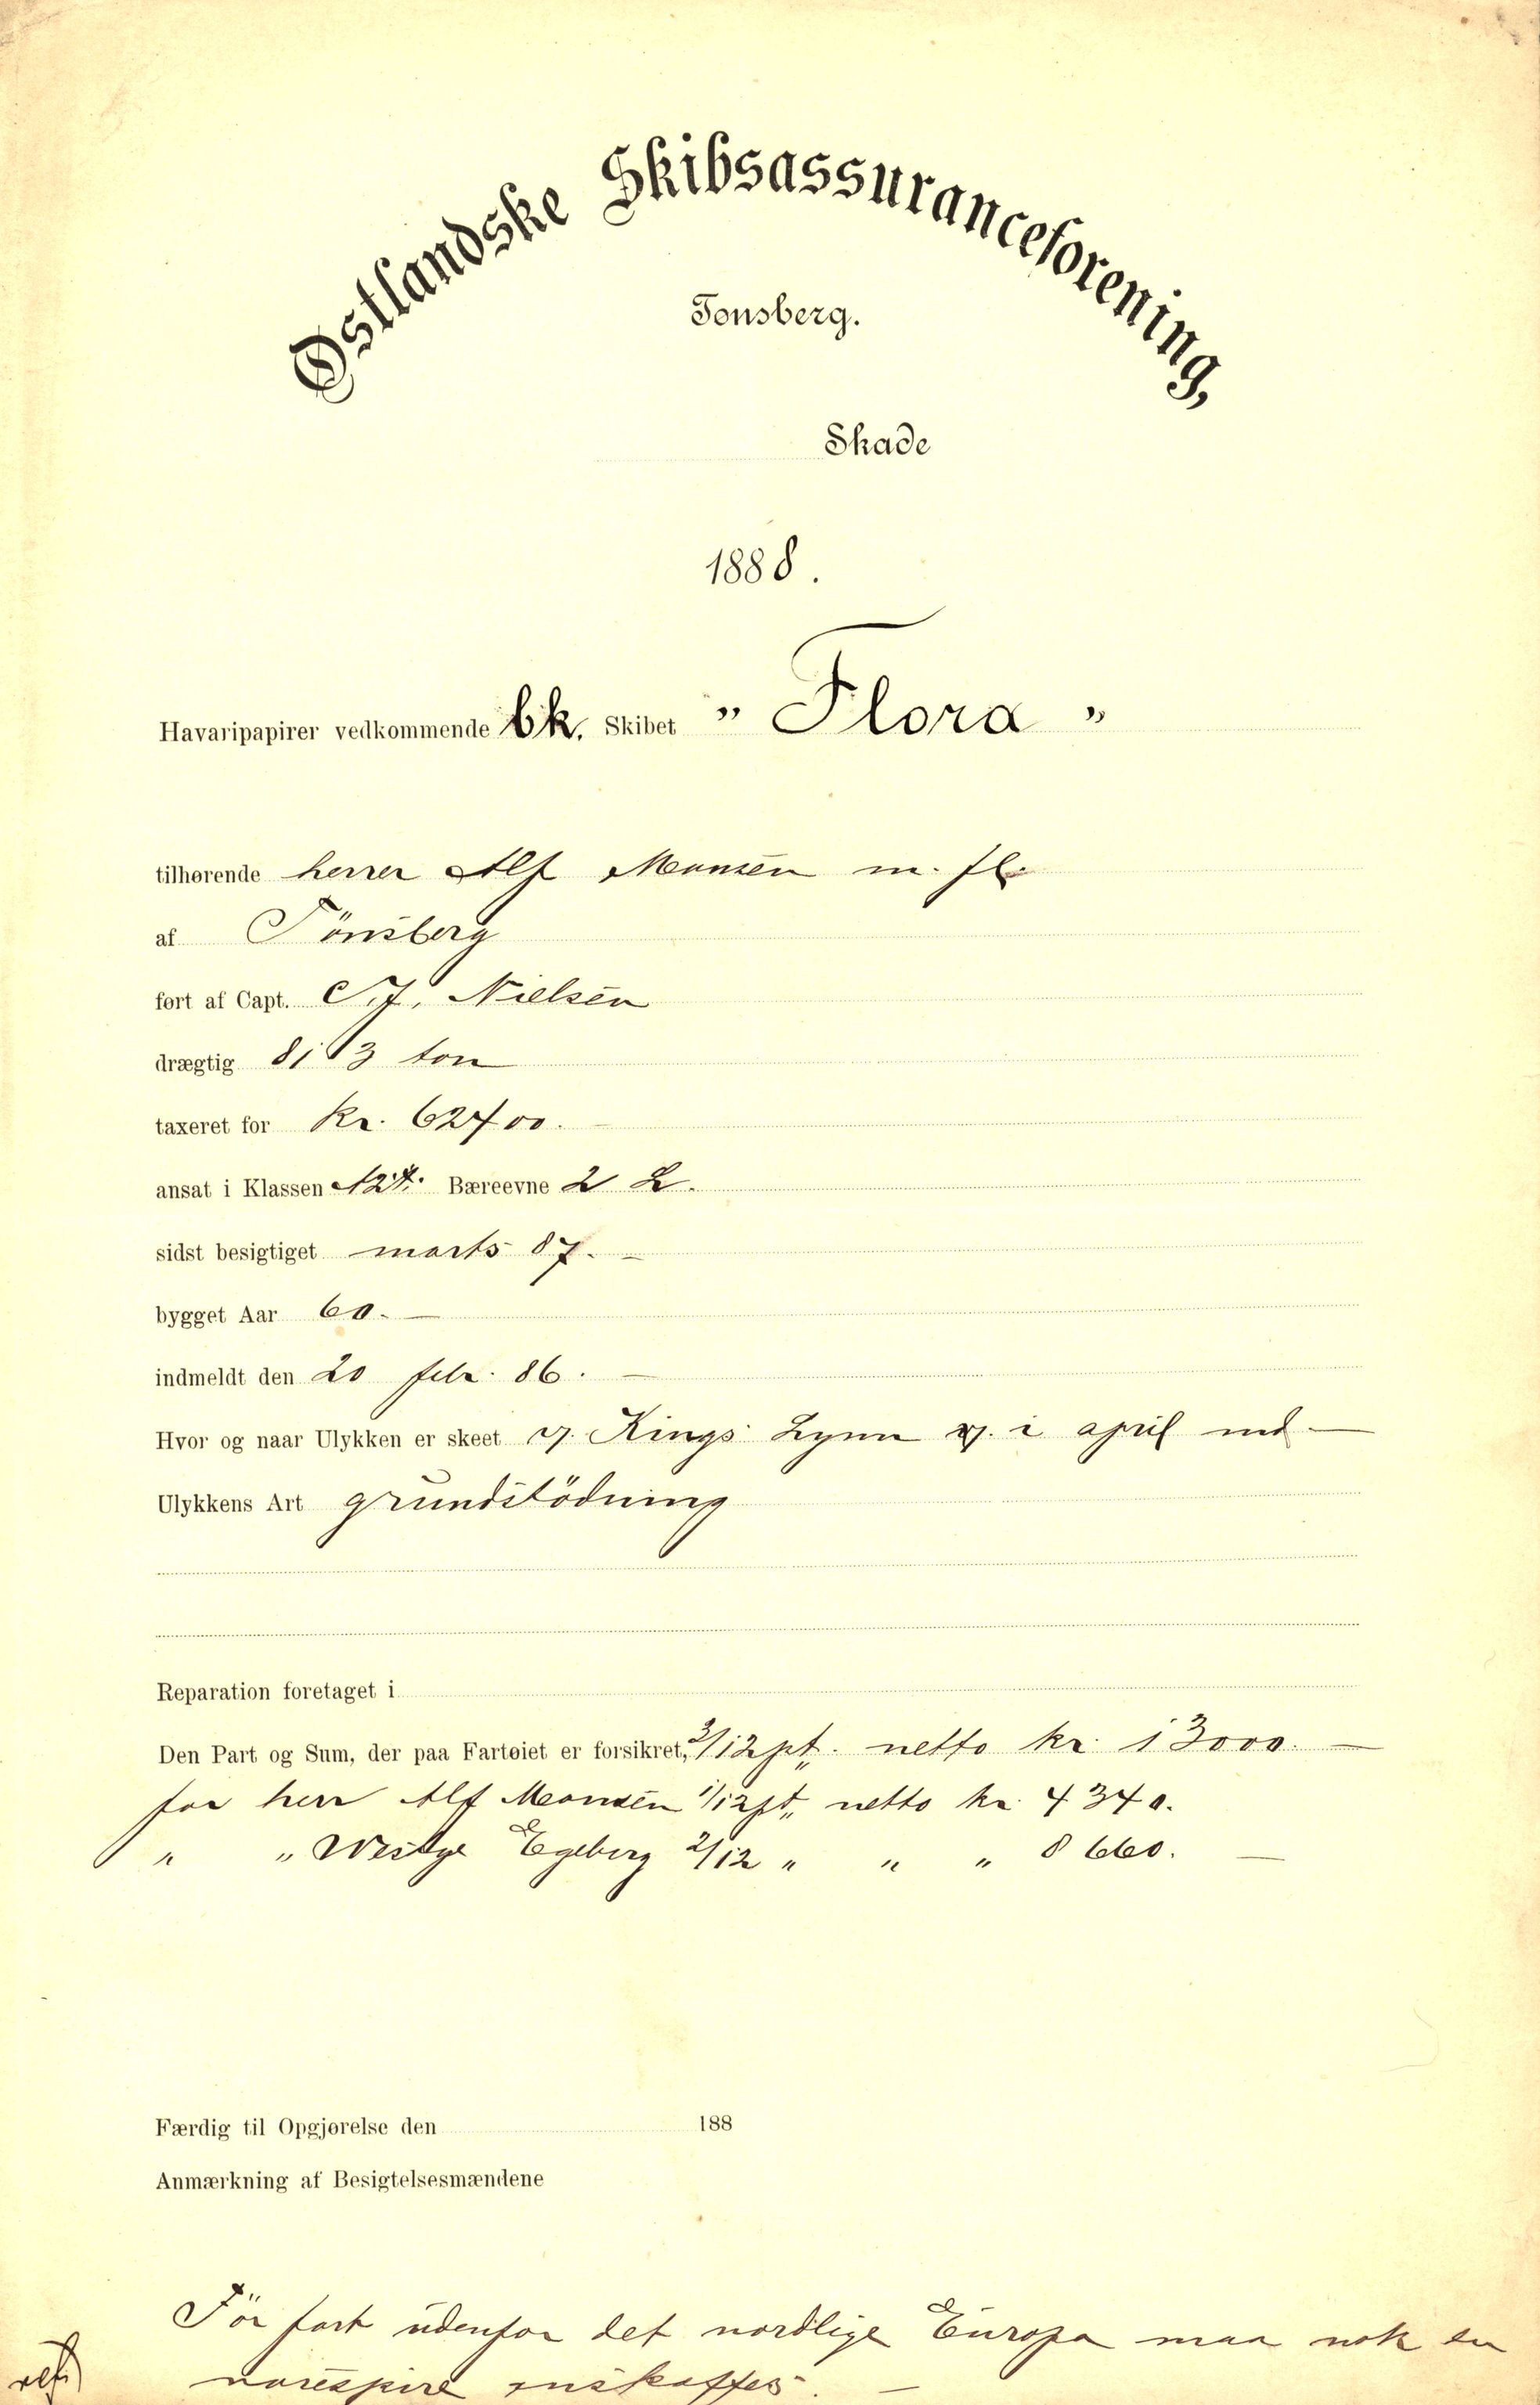 Østlandske Skibsassuranceforening,
Tønsberg.
Skade
1888.
Havaripapirer vedkommende bk. Skibet " Flora "
tilhørende herrer Alf Monsen m. fl.
af Tönsberg
ført af Capt. Nielsen
drægtig 813 ton
taxeret for Kr. 62400. —
ansat i Klassen A2 Bæreevne 2 L.
sidst besigtiget marts 87. —
bygget Aar 60. —
indmeldt den 20 febr. 86. —
Hvor og naar Ulykken er skeet v. Kings Lynn i april md —
Ulykkens Art grundstödning
Reparation foretaget i
Den Part og Sum, der paa Fartøiet er forsikret, 3/12 pt. netto kr. 13000. —
for herr Alf Monsen 1/12 pt. netto kr. 4340.
" " Westye Egeberg 2/12 " " " 8660. —
Færdig til Opgjørelse den 188
Anmærkning af Besigtelsesmændene
För fart udenfor det nordlige Europa maa nok en